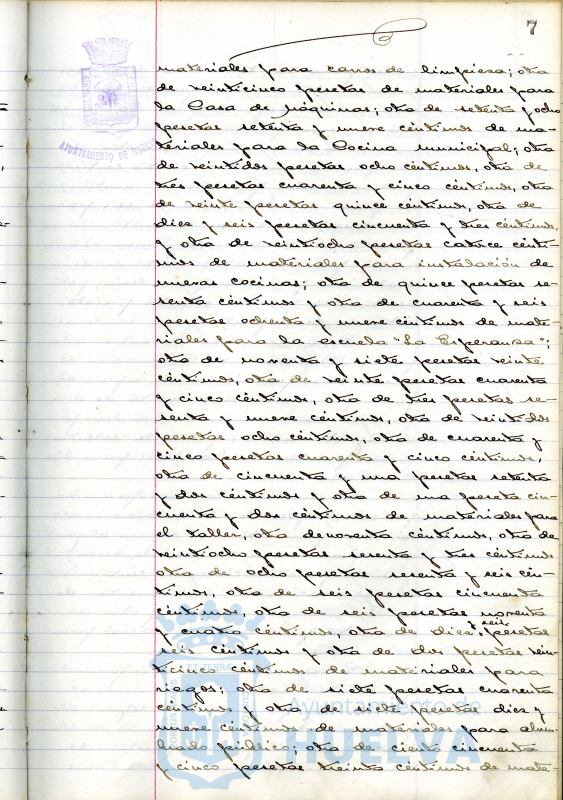 7
materiales para carros de limpieza; otra
de veinticinco pesetas de materiales para
la Casa de Máquinas; otra de setenta y ocho
pesetas setenta y nueve céntimos de ma-
teriales para la Cocina municipal; otra
de veintidos pesetas ocho céntimos, otra de
tres pesetas cuarenta y cinco céntimos, otra
de veinte pesetas quince céntimos, otra de
diez y seis pesetas cincuenta y tres céntimos,
y otra de veintiocho pesetas catorce cénti-
mos de materiales para instalación de
nuevas cocinas; otra de quince pesetas se-
senta céntimos y otra de cuarenta y seis
pesetas ochenta y nueve céntimos de mate-
riales para la escuela "La Esperanza";
otra de noventa y siete pesetas veinte
céntimos, otra de veinte pesetas cuarenta
y cinco céntimos, otra de tres pesetas se-
senta y nueve céntimos, otra de veintidos
pesetas ocho céntimos, otra de cuarenta y
cinco pesetas cuarenta y cinco céntimos,
otra de cincuenta y una pesetas setenta
y dos céntimos y otra de una peseta cin-
cuenta y dos céntimos de materiales para
el taller, otra de noventa céntimos, otra de
veintiocho pesetas sesenta y tres céntimos
otra de ocho pesetas sesenta y seis cén-
timos, otra de seis pesetas cincuenta
céntimos otra de seis pesetas noventa
y cuatro céntimos, otra de diez y seis pesetas
seis céntimos y otra de dos pesetas vein-
ticinco céntimos de materiales para
riegos; otra de siete pesetas cuarenta
céntimos y otra de siete pesetas diez y
nueve céntimos de materiales para alum-
brado público; otra de ciento cincuenta
y cinco pesetas treinta céntimos de mate-
AYUNTAMIENTO DE HUELVA
Ayuntamiento de
HUELVA